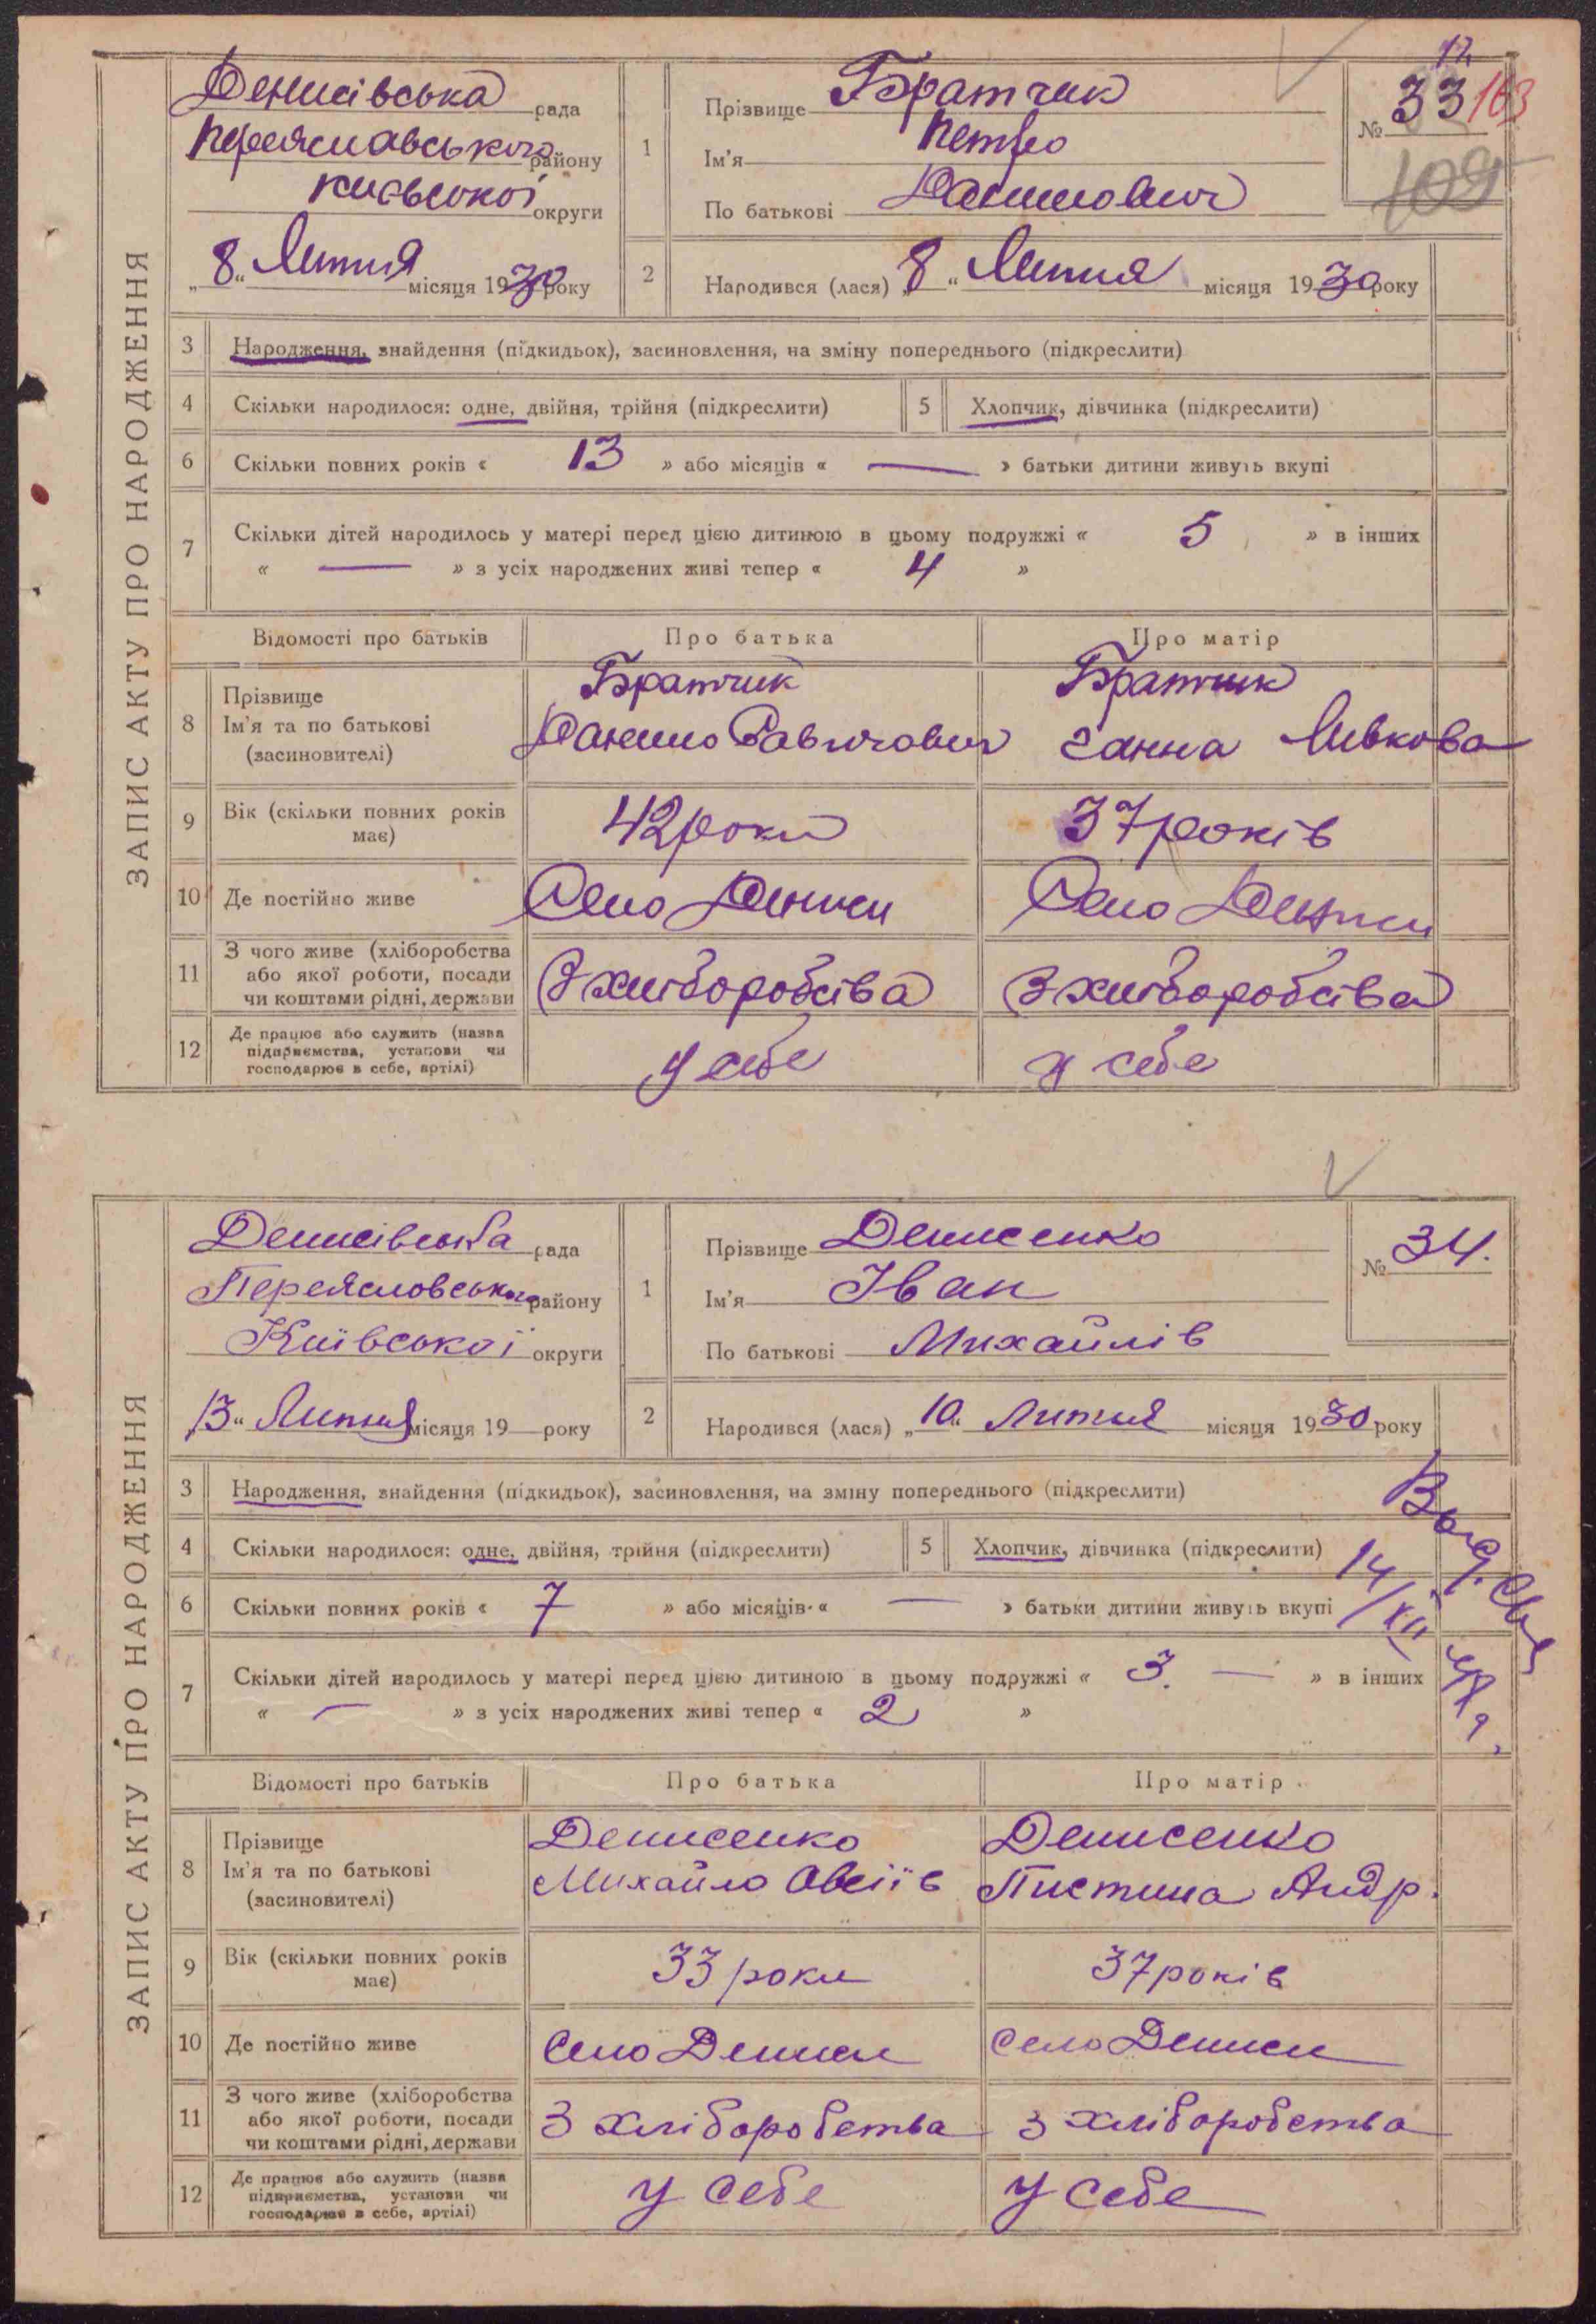 ЗАПИС АКТУ ПРО НАРОДЖЕННЯ
Денисівська рада
Переяславського району
Київської округи
„8“ Липня місяця 1930 року
1
Прізвище Братчик
Ім'я Петро
По батькові Данилович
№ 33
12
163
109
2
Народився (лася) „8“ Липня місяця 1930 року
3 Народження, знайдення (підкидьок), засиновлення, на зміну попереднього (підкреслити)
4 Скільки народилося: одне, двійня, трійня (підкреслити) 5 Хлопчик, дівчинка (підкреслити)
6 Скільки повних років « 13 » або місяців « — » батьки дитини живуть вкупі
7 Скільки дітей народилось у матері перед цією дитиною в цьому подружжі « 5 » в інших
« — » з усіх народжених живі тепер « 4 »
Відомості про батьків Про батька Про матір
8 Прізвище Братчик Братчик
Ім'я та по батькові Данило Ганна Ливкова
(засиновителі)
9 Вік (скільки повних років має) 42 роки 37 років
10 Де постійно живе Село Дениси Село Дениси
11 З чого живе (хліборобства
або якої роботи, посади
чи коштами рідні, держави
З хліборобсва З хліборобсва
12 Де працює або служить (назва
підприємства, установи чи
господарює в себе, артілі)
у себе у себе
ЗАПИС АКТУ ПРО НАРОДЖЕННЯ
Денисівська рада
Переясловського району
Київської округи
„13“ Липня місяця 19— року
1
Прізвище Денисенко
Ім'я Іван
По батькові Михайлів
№ 34.
2
Народився (лася) „10“ Липня місяця 1930 року
3 Народження, знайдення (підкидьок), засиновлення, на зміну попереднього (підкреслити)
4 Скільки народилося: одне, двійня, трійня (підкреслити) 5 Хлопчик, дівчинка (підкреслити)
6 Скільки повних років « 7 » або місяців « — » батьки дитини живуть вкупі
14/XII
7 Скільки дітей народилось у матері перед цією дитиною в цьому подружжі « 3. — » в інших
« — » з усіх народжених живі тепер « 2 »
Відомості про батьків Про батька Про матір
8 Прізвище Денисенко Денисенко
Ім'я та по батькові Михайло Пистина Андр.
(засиновителі)
9 Вік (скільки повних років має) 33 роки 37 років
10 Де постійно живе Село Дениси Село Дениси
11 З чого живе (хліборобства
або якої роботи, посади
чи коштами рідні, держави
З хліборобства З хліборобства
12 Де працює або служить (назва
підприємства, установи чи
господарює в себе, артілі)
у себе у себе